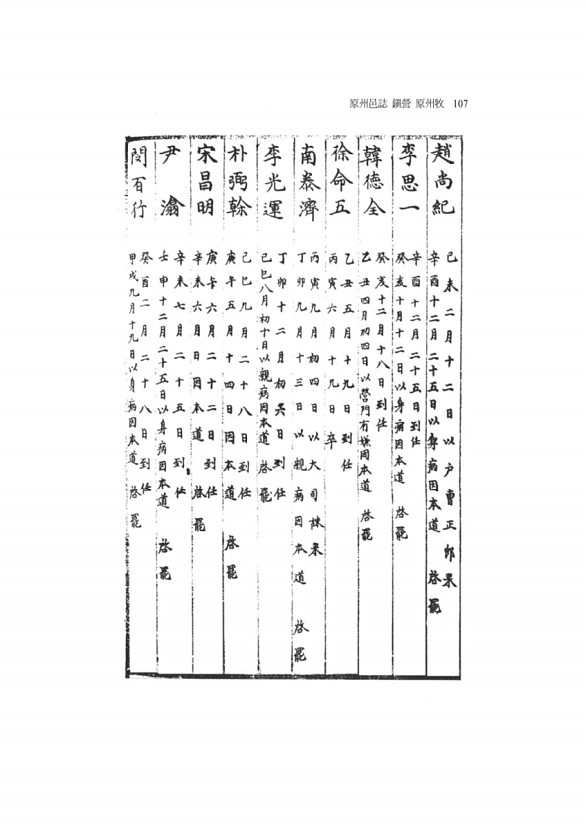 原州邑誌 鎭營 原州牧 107
趙尚紀
己未二月十二日以戶曹正郎來
辛酉十二月二十五日以身病因本道 啓罷
李思一
辛酉十二月二十五日到任
癸亥十月十二日以身病因本道 啓罷
韓德全
癸亥十二月十八日到任
乙丑四月初四日以營門有嫌因本道 啓罷
徐命五
乙丑五月十九日到任
丙寅六月十九日卒
南泰濟
丙寅九月初四日以大司諫來
丁卯九月十三日以親病因本道 啓罷
李光運
丁卯十二月初六日到任
己巳八月初十日以親病因本道 啓罷
朴弼榦
己巳九月二十八日到任
庚午五月十四日因本道 啓罷
宋昌明
庚午六月二十二日到任
辛未六月日因本道 啓罷
尹滃
辛未七月二十五日到任
壬申十二月二十五日以身病因本道 啓罷
閔百行
癸酉二月二十八日到任
甲戌九月十九日以身病因本道 啓罷